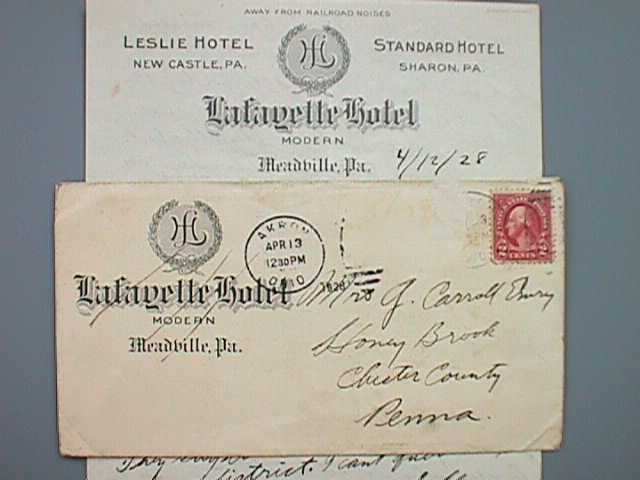 AWAY FROM RAILROAD NOISES
LESLIE HOTEL
NEW CASTLE, PA.
LH
STANDARD HOTEL
SHARON, PA.
Lafayette Hotel
MODERN
Meadville, Pa.
4/12/28
LH
Lafayette Hotel
MODERN
Meadville, Pa.
AKRON
APR 13
1230 PM
OHIO
1928
2 CENTS 2
Mrs J. Carroll Emery
Honey Brook
Chester County
Penna.
They
district. I can't